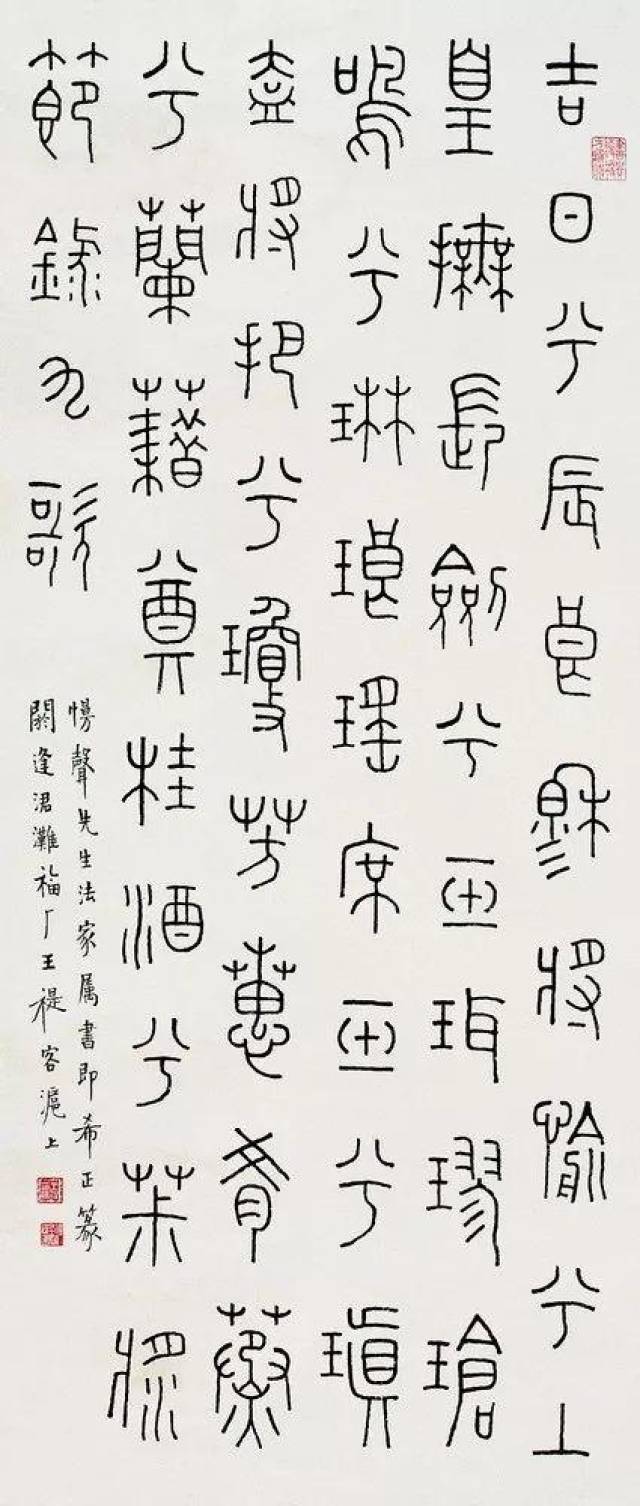 吉日兮辰良穆將愉兮上
皇撫長劍兮玉珥璆瑲
鳴兮琳琅瑤席玉兮瑱
盍將把兮瓊芳蕙肴蒸
兮蘭藉奠桂酒兮茮漿
節錄九歌
聲先生法家属書即希正篆
閼逢涒灘福厂王禔客滬上